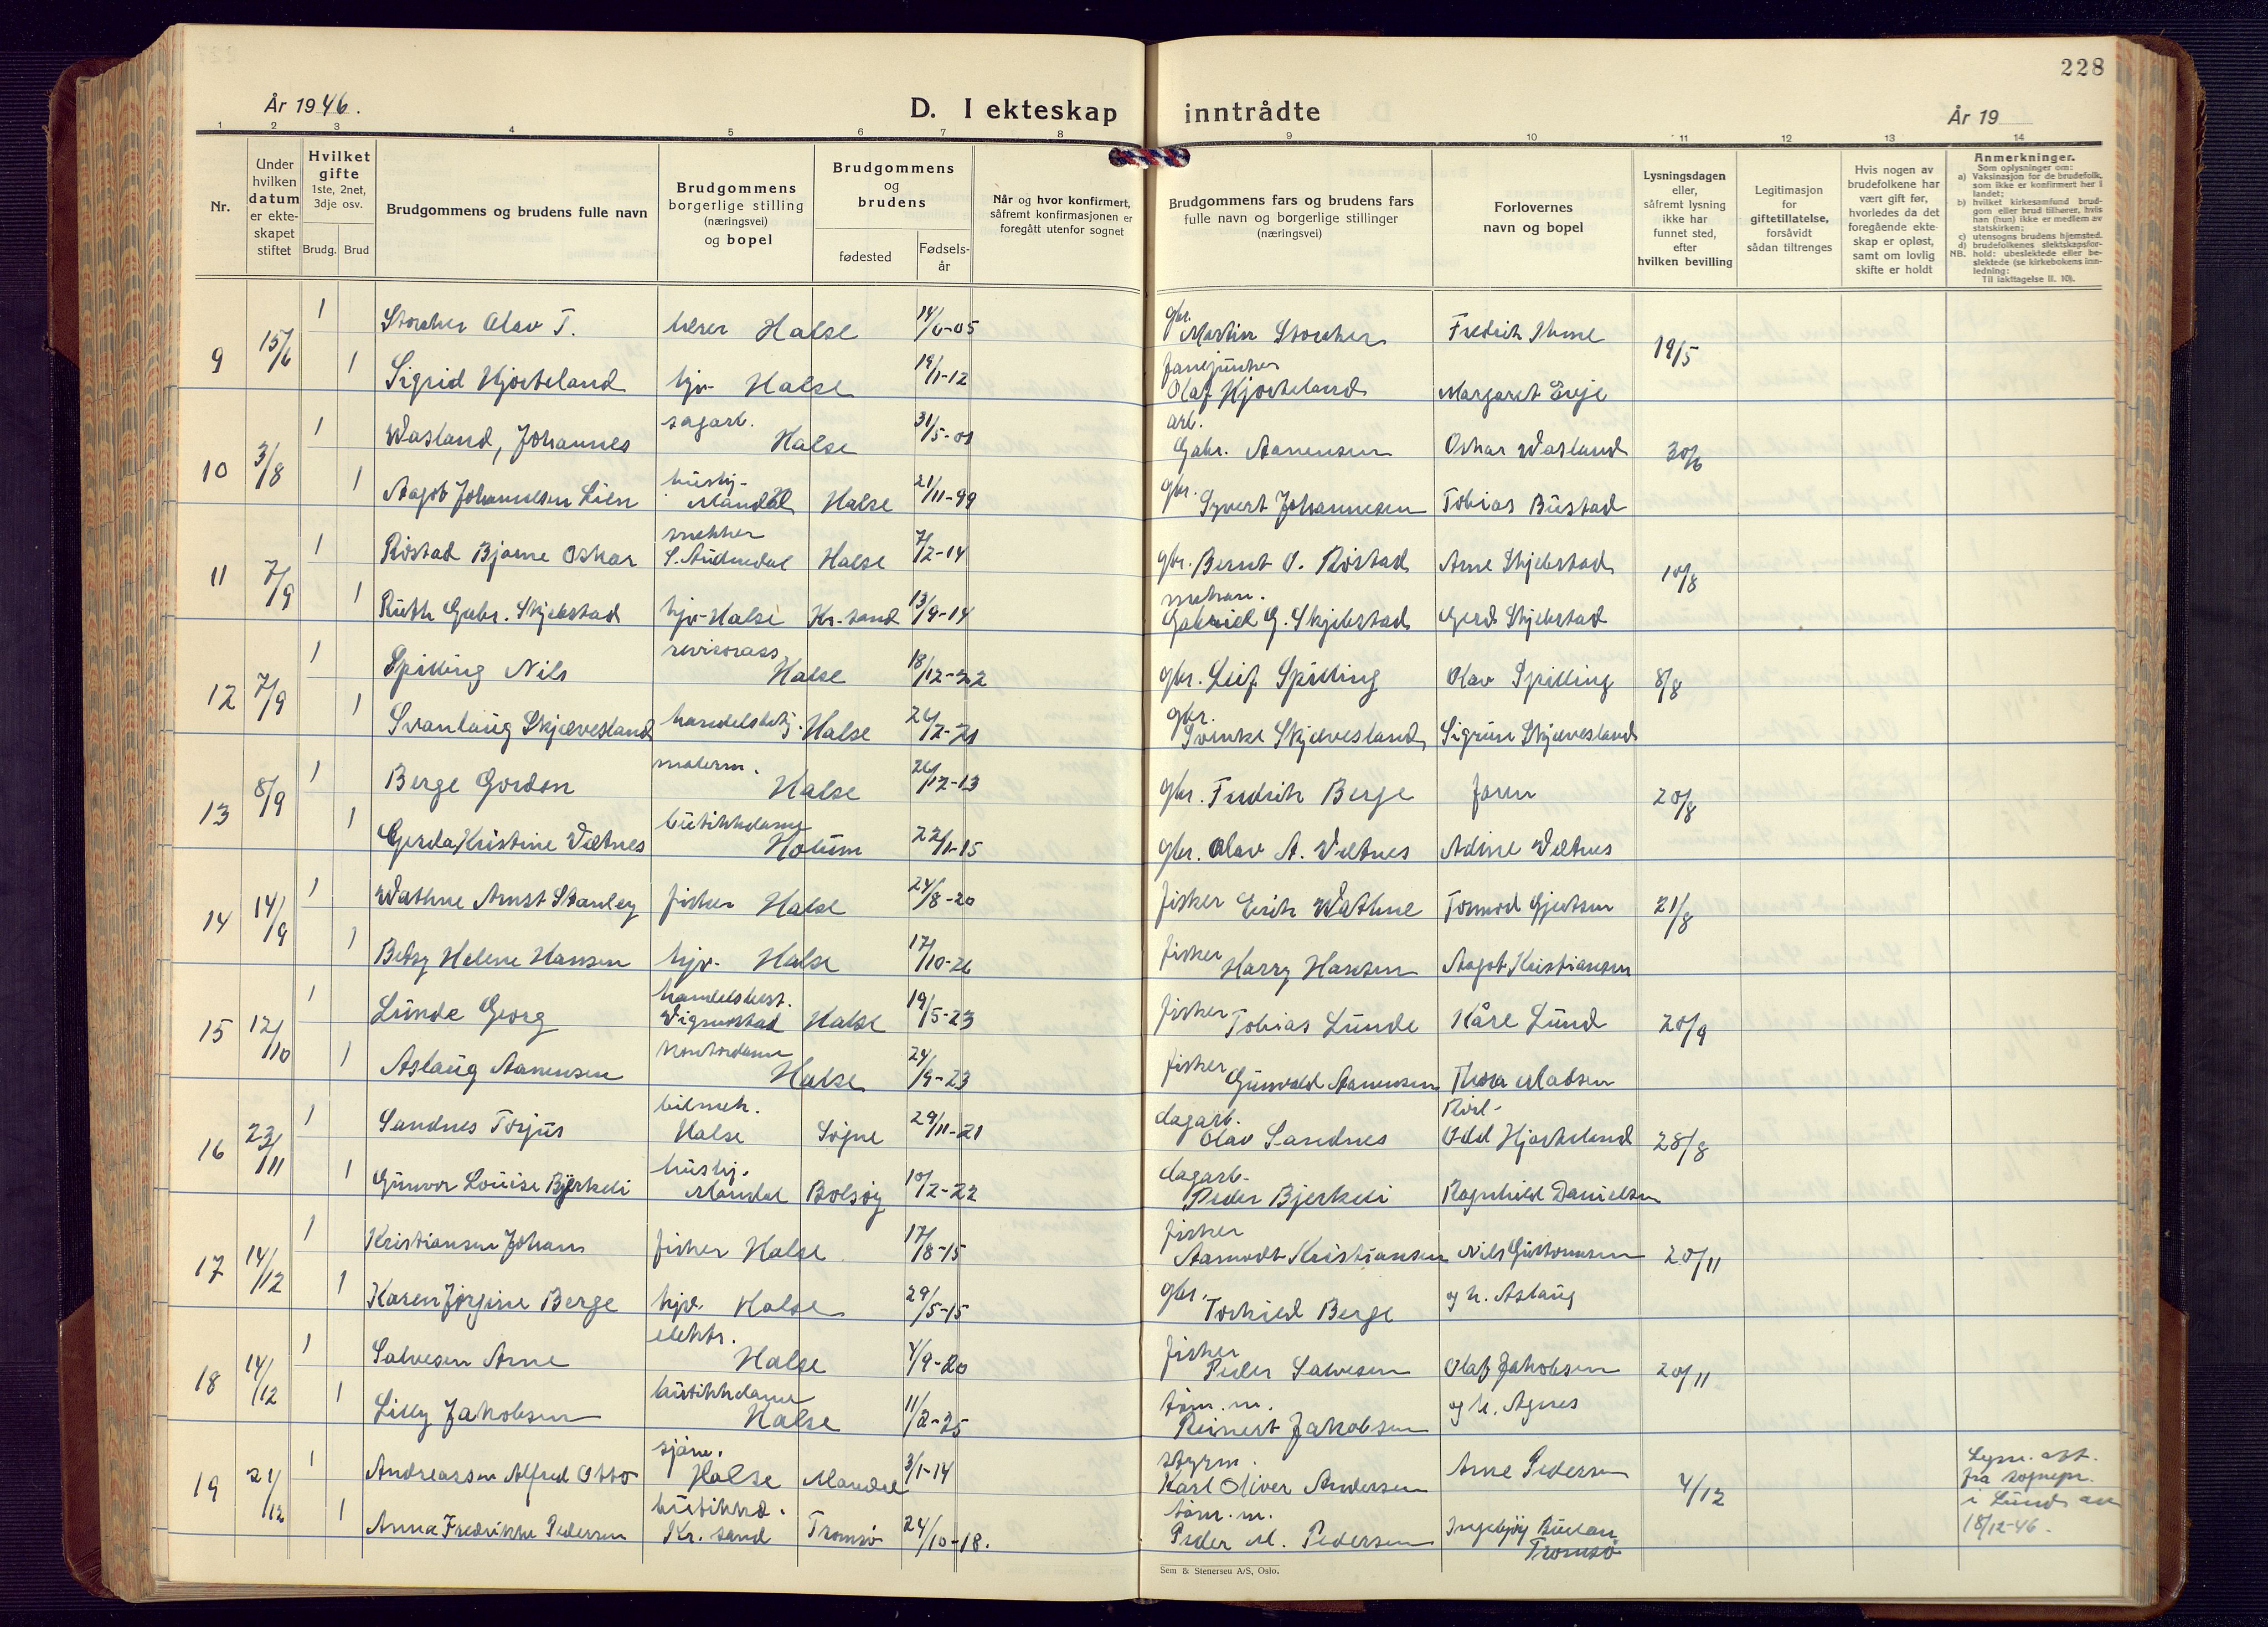 228
År 1946.
D. I ekteskap inntrådte
År 19
1 2 3 4 5 6 7 8 9 10 11 12 13 14
Nr.
Under
hvilken
datum
er ekte-
skapet
stiftet
Hvilket
gifte
1ste, 2net,
3dje osv.
Brudg. Brud
Brudgommens og brudens fulle navn
Brudgommens
borgerlige stilling
(næringsvei)
og bopel
Brudgommens
og
brudens
fødested
Fødsels-
år
Når og hvor konfirmert,
såfremt konfirmasjonen er
foregått utenfor sognet
Brudgommens fars og brudens fars
fulle navn og borgerlige stillinger
(næringsvei)
Forlovernes
navn og bopel
Lysningsdagen
eller,
såfremt lysning
ikke har
funnet sted,
efter
hvilken bevilling
Legitimasjon
for
giftetillatelse,
forsåvidt
sådan tiltrenges
Hvis nogen av
brudefolkene har
vært gift før,
hvorledes da det
foregående ekte-
skap er opløst,
samt om lovlig
skifte er holdt
Anmerkninger.
Som oplysninger om:
a) Vaksinasjon for de brudefolk,
som ikke er konfirmert her i
landet;
b) hvilket kirkesamfund brud-
gom eller brud tilhører, hvis
han (hun) ikke er medlem av
statskirken;
c) utensogns brudens hjemsted.
d) brudefolkenes slektskapsfor-
NB. hold: ubeslektede eller be-
slektede (se kirkebokens inn-
ledning:
Til iakttagelse II. 10).
9 15/6
1 Storaker Olav T. lærer Halse 14/6-05 gbr. Martin Storaker Fredrik Ihme 19/5
1 Sigrid Hjorteland hjv. Halse 19/1-12 fanejunker Olaf Hjorteland Margaret Evje
10 3/8
1 Wasland, Johannes sagarb. Halse 31/5-01 arb. Gabr. Aanensen Oskar Wasland 30/6
1 Aagot Johannesen Lien hushj. Mandal Halse 21/11-99 gbr. Syvert Johannesen Tobias Bustad
11 7/9
1 Röstad Bjarne Oskar snekker S. Audnedal Halse 7/2-14 gbr. Bernt O. Röstad Arne Skjebstad 10/8
1 Ruth Gabr. Skjebstad hjv. Halse Kr.-sand 13/9-14 mekan. Gabriel G. Skjebstad Gerd Skjebstad
12 7/9
1 Spilling Nils revisorass. Halse 18/12-22 gbr. Leif Spilling Olav Spilling 8/8
1 Svanlaug Skjævesland handelsbetj. Halse 26/2-21 gbr. Svenke Skjævesland Sigrun Skjævesland
13 8/9
1 Berge Gordon malerm. Halse 26/12-13 gbr. Fredrik Berge faren 20/8
1 Gerda Kristine Vætnes butikkdame Holum 22/1-15 gbr. Olav A. Vætnes Adine Vætnes
14 14/9
1 Wathne Arnst Stanley fisker Halse 24/8-20 fisker Erik Wathne Tormod Gjertsen 21/8
1 Betsy Helene Hansen hjv. Halse 17/10-26 fisker Harry Hansen Aagot Kristiansen
15 12/10
1 Lunde Georg handelsbest. Vigmostad Halse 19/5-23 fisker Tobias Lunde Kåre Lund 20/9
1 Aslaug Aanensen kontordame Halse 24/9-23 fisker Gunvald Aanensen Thora Madsen
16 23/11
1 Sandnes Torjus bilmek. Halse Søgne 29/11-21 dagarb. Olav Sandnes Odd Hjorteland 28/8
1 Gunvor Louise Bjerkeli hushj. Mandal Bolsøy 10/2-22 dagarb. Peder Bjerkeli Ragnhild Danielsen
17 14/12
1 Kristiansen Johan fisker Halse 17/8-15 fisker Aamodt Kristiansen Nils Guttormsen 20/11
1 Karen Jørgine Berge hjv. Halse 29/5-15 gbr. Torkild Berge og h. Aslaug
18 14/12
1 Salvesen Arne elektr. Halse 4/9-20 fisker Peder Salvesen Olaf Jakobsen 20/11
1 Lilly Jakobsen butikkdame Halse 11/2-25 tøm.m. Reinert Jakobsen og h. Agnes
19 21/12
1 Andreassen Alfred Otto sjøm. Halse Mandal 3/1-14 styrm. Karl Oliver Andersen Arne Pedersen 4/12
1 Anna Fredrikke Pedersen butikkd. Kr. sand Tromsø 24/10-18. tøm.m. Peder M. Pedersen Ingebjørg Tromsø
Lysn. att.
fra sognepr.
i Lund av
18/12-46.
Sem & Stenersen A/S, Oslo.